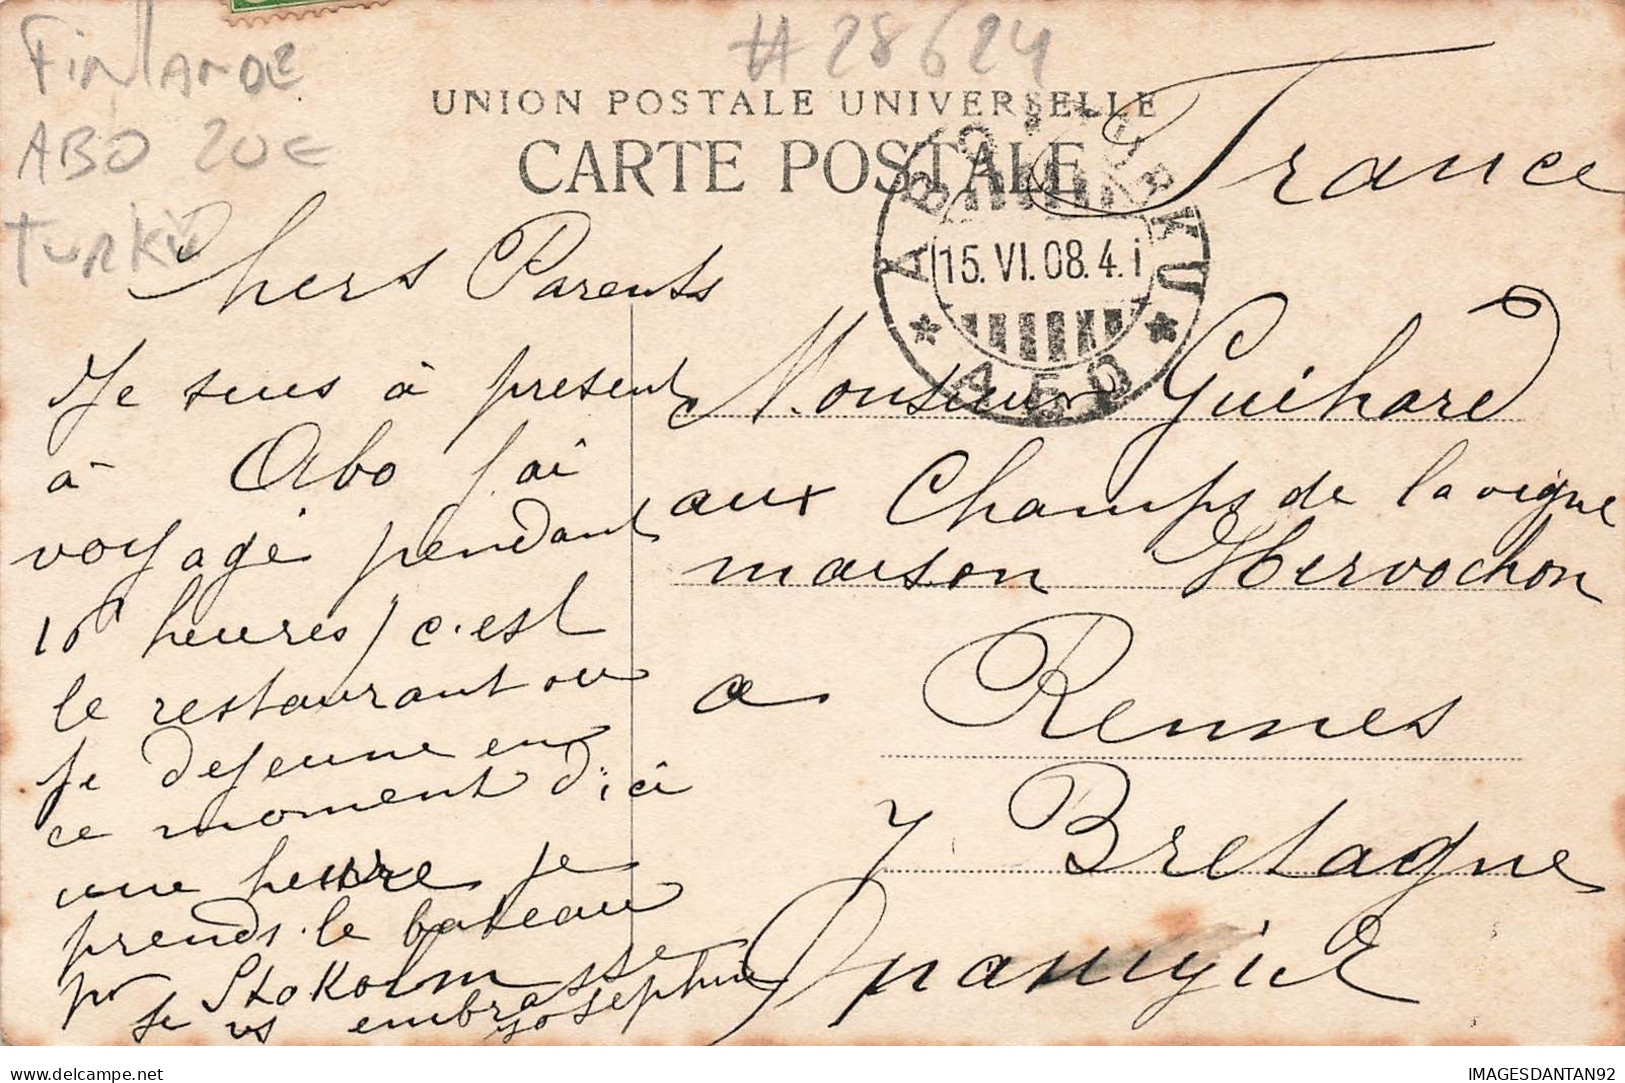 # 28624
Finlande
ABO 20€
Turku
UNION POSTALE UNIVERSELLE
CARTE POSTALE
ABO TURKU
15. VI. 08. 4. i
ABO
France
Chers Parents
Je suis à present
à Abo j'ai
voyagé pendant
16 heures c'est
le restaurant ou
je dejeune en
ce moment d'ici
une heure je
prends le bateau
pr Stokolm
je vs embrasse
Josephine
Monsieur Guihard
aux Champs de la vigne
maison Hervochon
a Rennes
Bretagne
IMAGESDANTAN92
delcampe.net